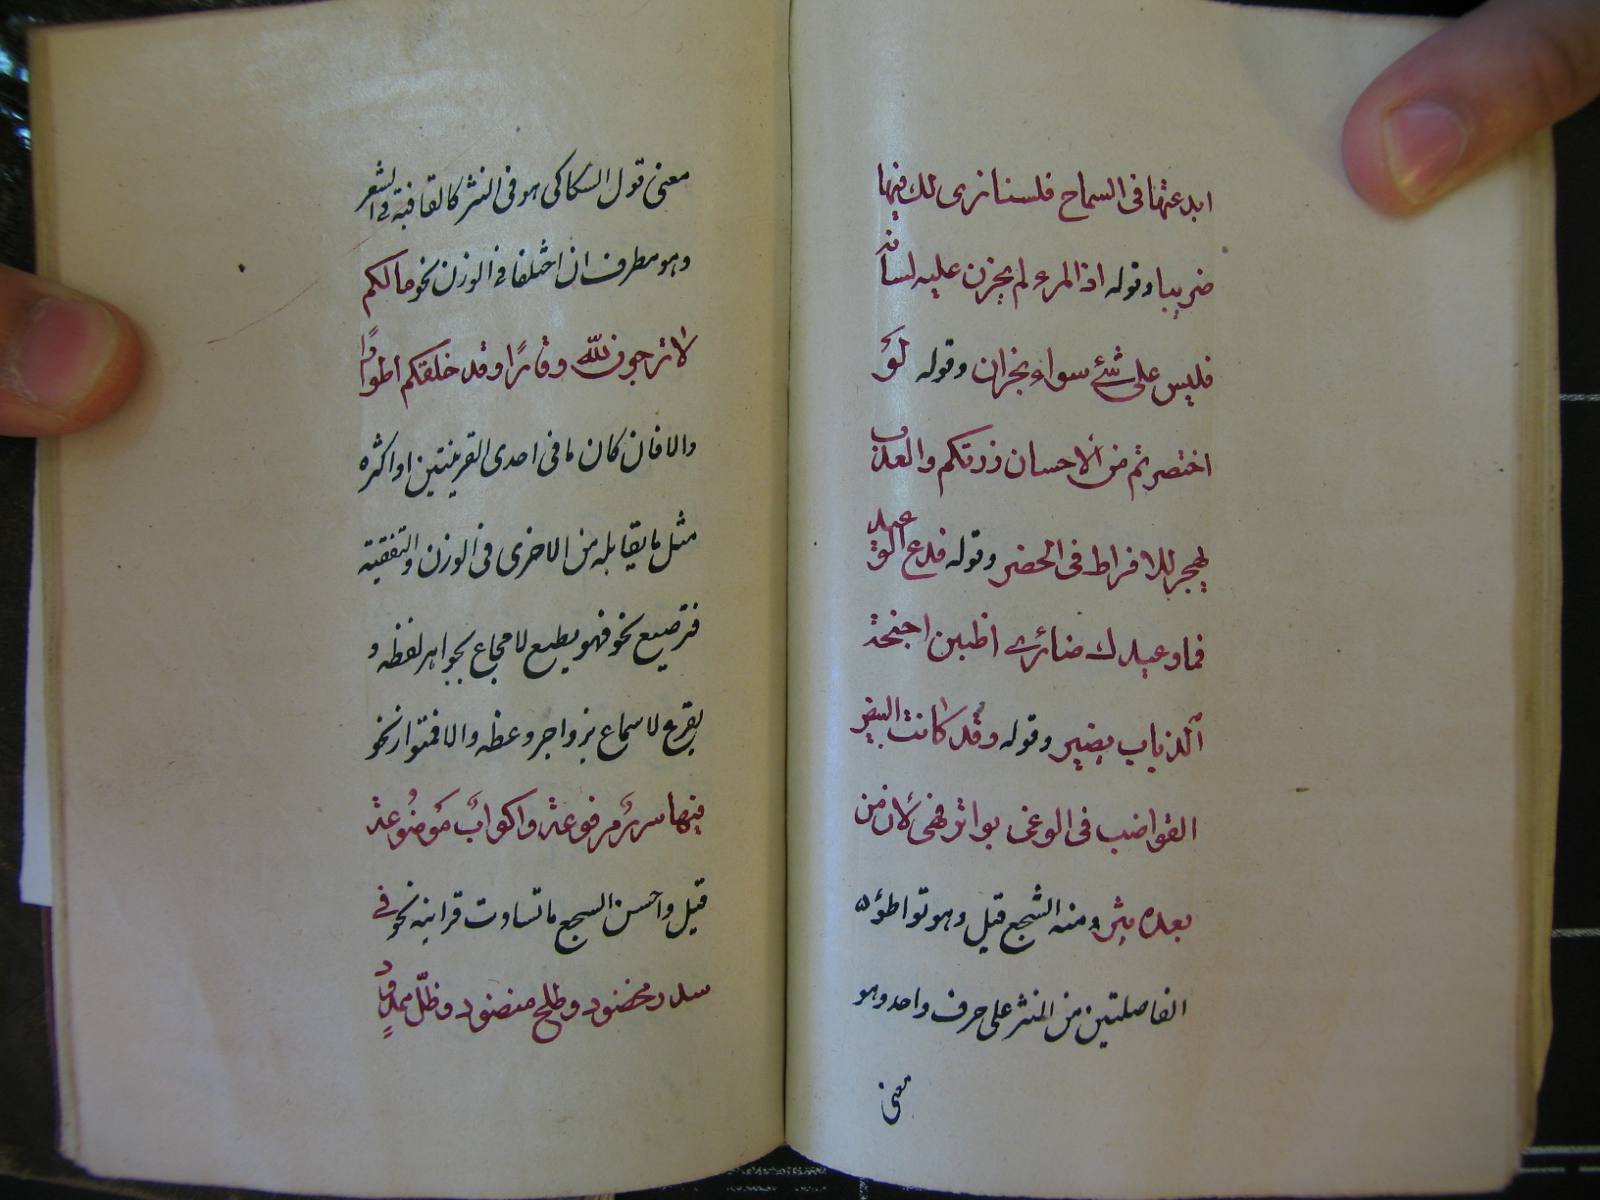 ابدعتها فى السماح فلسنا نرى لك فيها
ضريبا وقوله اذا المرء لم يخزن عليه لسانه
فليس على شئ سواه بخزان وقوله لَوْ
اختصرتم من الاحسان زرتكم والعذب
يهجر للافراط فى الخصر وقوله فدع الوعيد
فما وعيدك ضائرى اطنين اجنحة
الذباب يضير وقوله وقد كانت البيض
القواضب فى الوغى بواتر فهى لان من
بعده بتر ومنه السجع قيل وهو تواطؤ
الفاصلتين من النثر على حرف واحد وهو
معنى
معنى قول السكاكى هو فى النثر كالقافية فى الشعر
وهو مطرف ان اختلفا فى الوزن نحو مالكم
لا ترجون لله وقارًا وقد خلقكم اطوارًا
والا فان كان ما فى احدى القرينتين او اكثره
مثل ما يقابله من الاخرى فى الوزن والتقفية
فترصيع نحو فهو يطبع لاسجاع بجواهر لفظه و
يقرع لاسماع بزواجر وعظه والا فمتواز نحو
فيها سررٌ مرفوعة واكوابٌ موضُوعة
قيل واحسن السجع ما تساوت قراينه نحو فى
سدر مخضود وطلح منضود وظلّ ممدودٍ